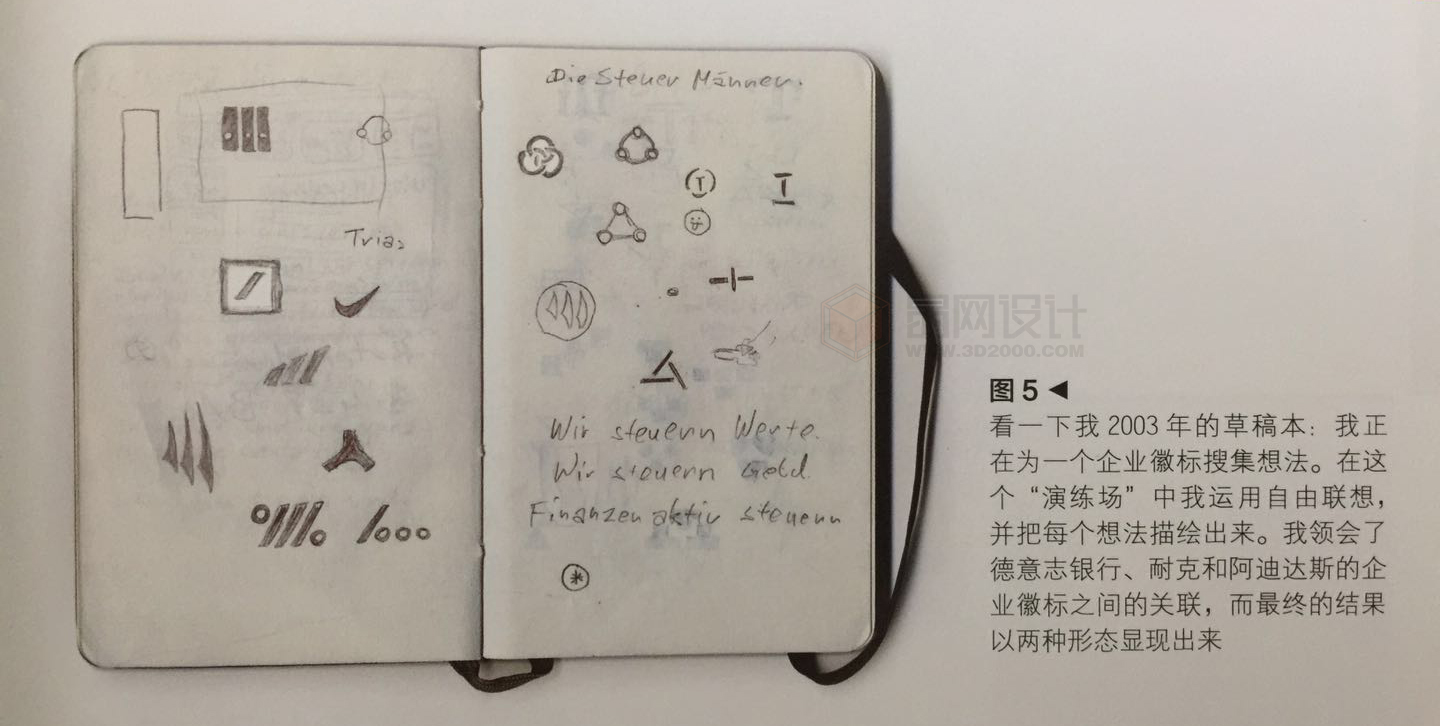 Die Steuer Männer.
Tria
T
T
Wir steuern Werte.
Wir steuern Geld.
Finanzen aktiv steuern
晶网设计
WWW.3D2000.COM
图 5 ◀
看一下我 2003 年的草稿本：我正
在为一个企业徽标搜集想法。在这
个“演练场”中我运用自由联想，
并把每个想法描绘出来。我领会了
德意志银行、耐克和阿迪达斯的企
业徽标之间的关联，而最终的结果
以两种形态显现出来